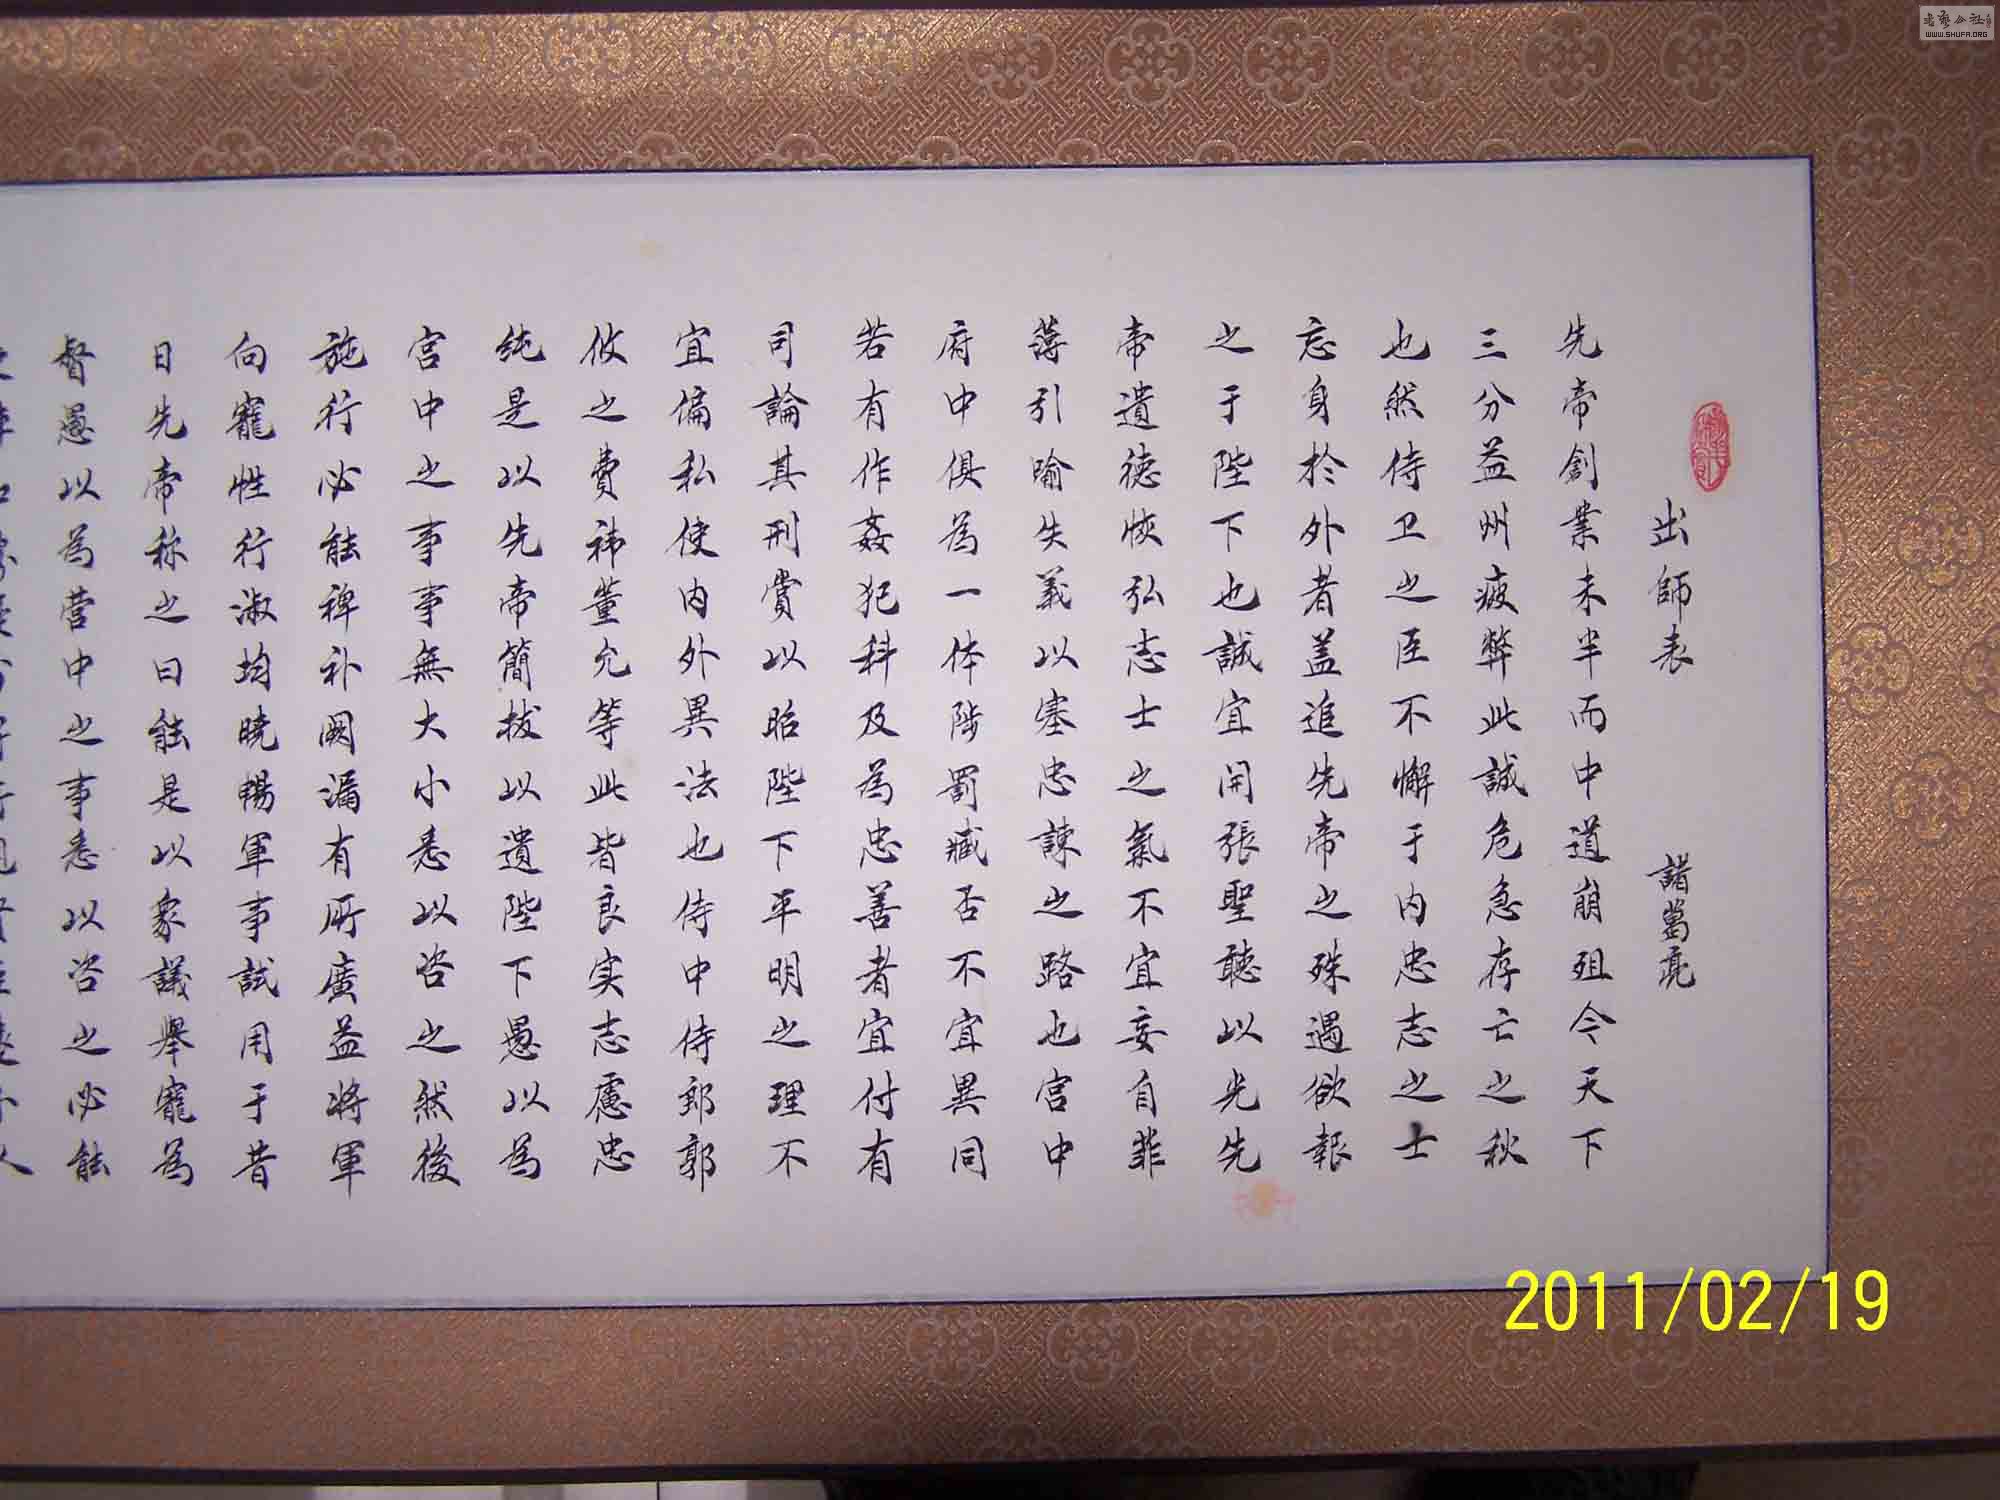 出師表 諸葛亮
先帝創業未半而中道崩殂今天下
三分益州疲弊此誠危急存亡之秋
也然侍卫之臣不懈于内忠志之士
忘身於外者盖追先帝之殊遇欲報
之于陛下也誠宜開張聖聽以光先
帝遺德恢弘志士之氣不宜妄自菲
薄引喻失義以塞忠諫之路也宫中
府中俱為一体陟罰臧否不宜異同
若有作姦犯科及為忠善者宜付有
司論其刑賞以昭陛下平明之理不
宜偏私使内外異法也侍中侍郎郭
攸之費祎董允等此皆良实志慮忠
純是以先帝簡拔以遺陛下愚以為
宫中之事事無大小悉以咨之然後
施行必能裨补阙漏有所廣益将軍
向寵性行淑均曉暢軍事試用于昔
日先帝称之曰能是以衆議舉寵為
督愚以為营中之事悉以咨之必能
2011/02/19
書藝公社
WWW.SHUFA.ORG